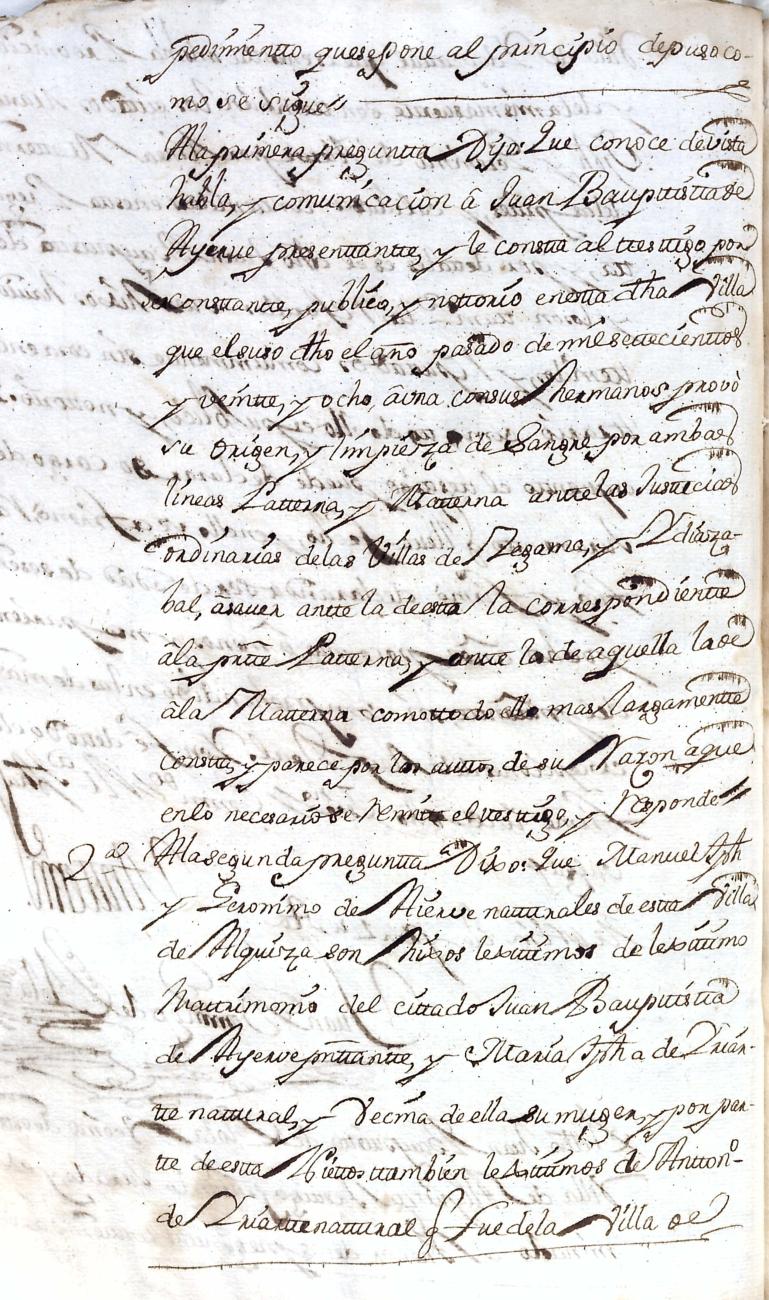 pedimentto que se pone al principio depuso co-
mo se sigue
Ala primera preguntta Dijo: Que conoce de vista
habla, y comunicacion â Juan Bauptistta de
Ayerve presenttantte, y le constta al ttesttigo por
ser constante, publico, y nottorio en estta dha Villa
que el suso dho el año pasado de mil settecienttos
y veintte, y ocho, â una con sus hermanos provò
su origen, y limpieza de Sangre por ambas
lineas Patterna, y Matterna antte las Justicias
ordinarias de las Villas de Zegama, y Ydiaza-
bal, âsaver antte la de estta la correspondientte
âla partte Patterna, y antte la de aquella la de
âla Matterna como ttodo ello mas largamentte
Constta, y parece por los auttos de su razon aque
en lo necesario se remitte el testtigo, y responde
2ª Ala segunda preguntta Dixo: Que Manuel Jph
y Geronimo de Aierve natturales de estta Villa
de Alquiza son hixos lexittimos de lexittimo
Mattrimonio del cittado Juan Bauptistta
de Ayerve pnttantte, y Maria Jpha de Yriar-
tte nattural, y vecina de ella su muger, y por par-
tte de estta Niettos ttambien lexittimos de Antton.º
de Yriartte nattural q Fue de la Villa de